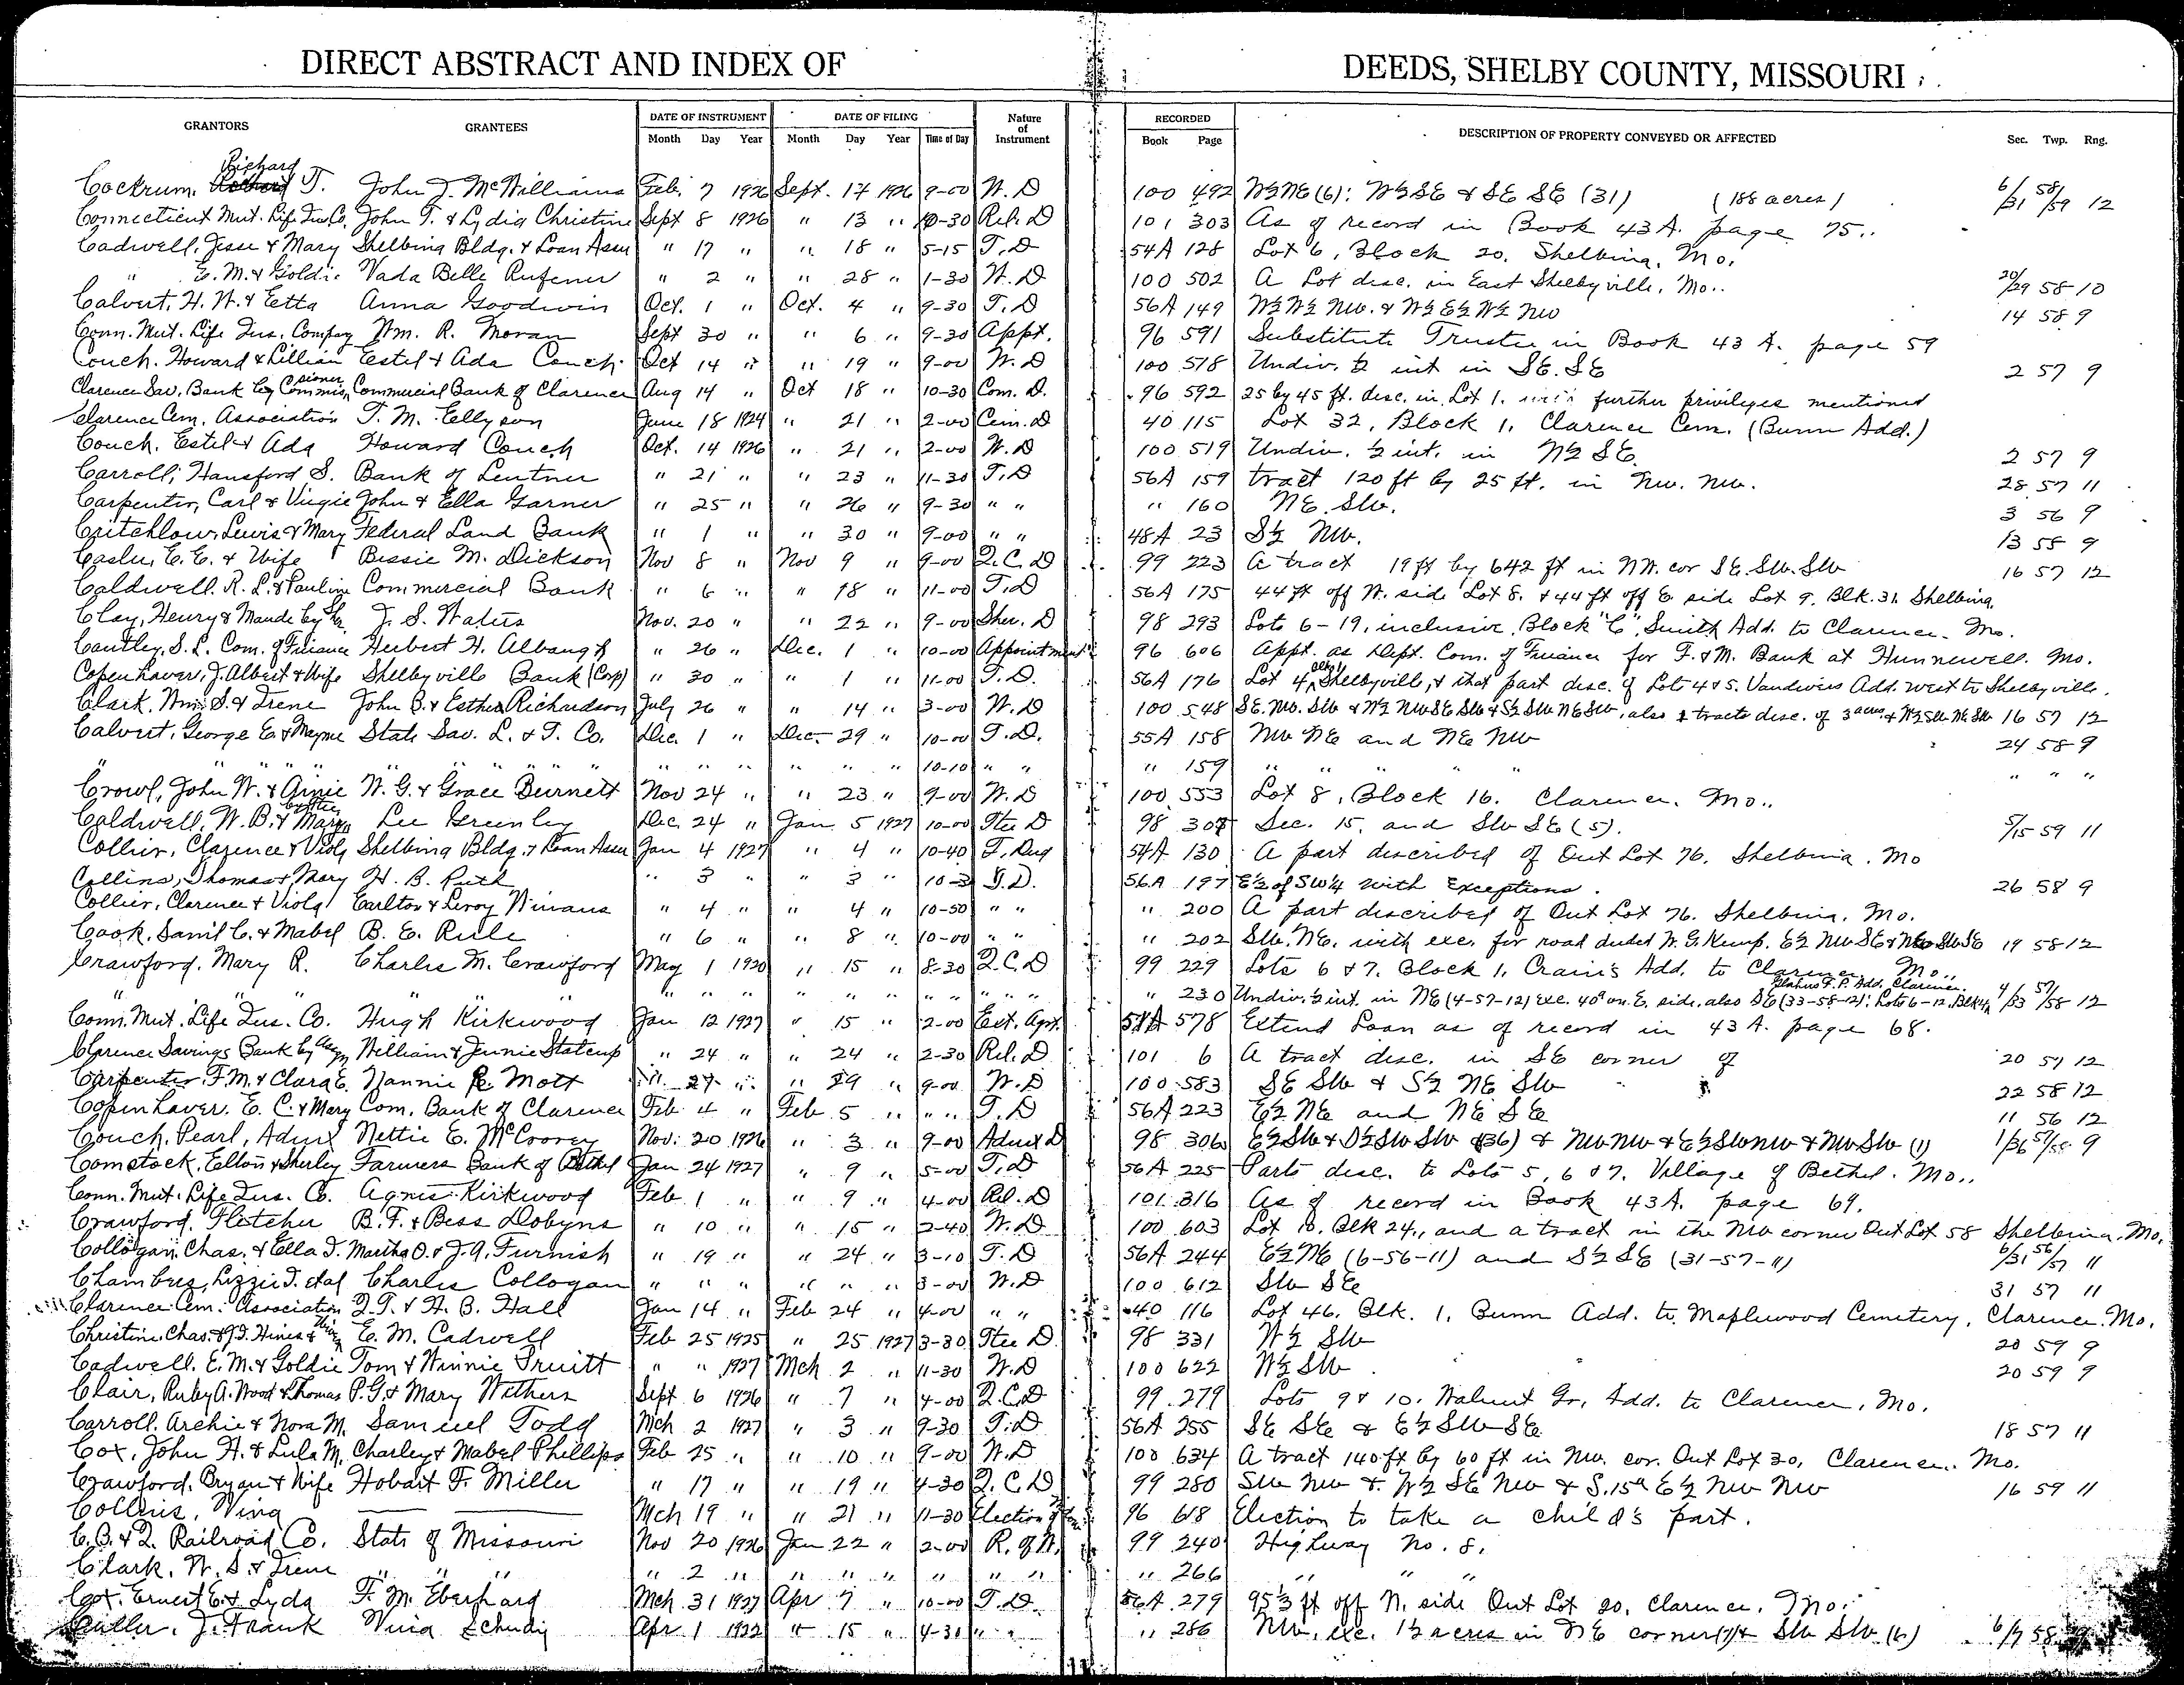 DIRECT ABSTRACT AND INDEX OF DEEDS, SHELBY COUNTY, MISSOURI
GRANTORS GRANTEES DATE OF INSTRUMENT DATE OF FILING Nature of Instrument RECORDED DESCRIPTION OF PROPERTY CONVEYED OR AFFECTED Sec. Twp. Rng.
Month Day Year Month Day Year Time of Day Book Page
Cockrum, Richard T. John J. McWilliams Feb. 7 1926 Sept. 17 1926 9-00 W. D 100 492 W½NE(6): W½SE & SE SE (31) (188 acres) 6/31 58/59 12
Connecticut Mut. Life Ins Co. John T. & Lydia Christine Sept 8 1926 " 13 " 10-30 Rel. D 101 303 As of record in Book 43A. page 75.
Cadwell, Jesse & Mary Shelbina Bldg. & Loan Assn " 17 " " 18 " 5-15 T. D 54A 128 Lot 6, Block 20, Shelbina, Mo.
" E. M. & Goldie Vada Belle Rufener " 2 " " 28 " 1-30 W. D 100 502 A Lot disc. in East Shelbyville, Mo.. 20/29 58 10
Calvert, H. W. & Etta Anna Goodwin Oct. 1 " Oct. 4 " 9-30 T. D 56A 149 W½ W½ NW. & W½ E½ W½ NW 14 58 9
Conn. Mut. Life Ins. Company Wm. R. Moran Sept 30 " " 6 " 9-30 Appt. 96 591 Substitute Trustee in Book 43 A. page 59
Couch, Howard & Lillian Estel & Ada Couch Oct 14 " " 19 " 9-00 W. D 100 578 Undiv. ½ int in SE. SE 2 57 9
Clarence Sav. Bank by Commissioner Commercial Bank of Clarence Aug 14 " Oct 18 " 10-30 Com. D. 96 592 25 by 45 ft. desc. in Lot 1, with further privileges mentioned
Clarence Cem. Association T. M. Ellyson June 18 1924 " 21 " 2-00 Cem. D 40 115 Lot 32, Block 1, Clarence Cem. (Bunn Add.)
Couch, Estel & Ada Howard Couch Oct. 14 1926 " 21 " 2-00 W. D 100 519 Undiv. ½ int. in W½ SE. 2 57 9
Carroll, Hansford S. Bank of Lentner " 21 " " 23 " 11-30 T. D 56A 159 tract 120 ft by 25 ft. in NW. NW. 28 57 11
Carpenter, Carl & Virgie John & Ella Garner " 25 " " 26 " 9-30 " " " 160 NE. SW. 3 56 9
Critchlow, Lewis & Mary Federal Land Bank " 1 " " 30 " 9-00 " " 48A 23 S½ NW. 13 58 9
E. E. & Wife Bessie M. Dickson Nov 8 " Nov 9 " 9-00 Q. C. D 99 223 A tract 19 ft by 642 ft in NW. cor SE. SW. SW 16 57 12
Caldwell, R. L. & Pauline Commercial Bank " 6 " " 18 " 11-00 T. D 56A 175 44 ft off W. side Lot 8. & 44 ft off E. side Lot 9, Blk. 31. Shelbina
Clay, Henry & Maude by Sh. J. S. Waters Nov. 20 " " 22 " 9-00 Sher. D 98 293 Lots 6-19, inclusive, Block "C", Smith Add. to Clarence. Mo.
Cantley, S. L. Com. of Finance Herbert H. Albaugh " 26 " Dec. 1 " 10-00 Appointment 96 606 Appt. as Dept. Com. of Finance for F. & M. Bank at Hunnewell. Mo.
Copenhaver, J. Albert & Wife Shelbyville Bank (Corp) " 30 " " 1 " 11-00 T. D. 56A 176 Lot 4, Shelbyville, & that part disc. of Lots 4 & 5. Vandivers Add. west to Shelbyville.
Clark, Wm. S. & Irene John B. & Esther Richardson July 26 " " 14 " 3-00 W. D 100 548 SE. NW. SW & W½ NW SE SW & S½ SW NE SW, also 2 tracts disc. of 3 acres & W½ SW NE SW 16 57 12
Calvert, George E. & Mayme State Sav. L. & T. Co. Dec. 1 " Dec. 29 " 10-00 T. D. 55A 158 NW NE and NE NW 24 58 9
" " " " " " " " " " " " " " 10-10 " " " 159 " " " " " " "
Crowl, John W. & Amie W. G. & Grace Burnett Nov 24 " " 23 " 9-00 W. D 100 553 Lot 8, Block 16. Clarence. Mo..
Caldwell, W. B. & Mary by Stee Lee Greenley Dec. 24 " Jan 5 1927 10-00 Stee D 98 308 Sec. 15, and SW SE (5). 5/15 59 11
Collier, Clarence & Viola Shelbina Bldg. & Loan Assn Jan 4 1927 " 4 " 10-40 T. Deed 54A 130 A part described of Out Lot 76. Shelbina. Mo
Collins, Thomas & Mary H. B. Ruth " 3 " " 3 " 10-3 T. D. 56A 197 E½ of SW¼ with Exceptions. 26 58 9
Collier, Clarence & Viola Carlton & Leroy Winans " 4 " " 4 " 10-50 " " " 200 A part described of Out Lot 76. Shelbina. Mo.
Cook, Saml C. & Mabel B. E. Rule " 6 " " 8 " 10-00 " " " 202 SW. NE. with exc. for road deeded W. G. Kemp. E½ NW SE & NE SW SE 19 58 12
Crawford, Mary R. Charles M. Crawford May 1 1920 " 15 " 8-30 Q. C. D 99 229 Lots 6 & 7. Block 1, Crain's Add. to Clarence, Mo..
" " " " " " " " " " " " " " 230 Undiv. ½ int. in NE (4-57-12) exc. 40ª on. E. side, also SE (33-58-12): Lots 6-12, Blk 4 Add. Clarence 4/33 57/58 12
Conn. Mut. Life Ins. Co. Hugh Kirkwood Jan 12 1927 " 15 " 2-00 Ext. Agrt. 51A 578 Extend Loan as of record in 43 A. page 68.
Clarence Savings Bank by William & Junie Statcup " 24 " " 24 " 2-30 Rel. D 101 6 A tract disc. in SE corner of 20 57 12
Carpenter, F. M. & Clara E. Nannie R. Mott " 27 " " 29 " 9-00 W. D 100 583 SE SW & S½ NE SW 22 58 12
Copenhaver. E. C. & Mary Com. Bank of Clarence Feb 4 " Feb 5 " " " T. D 56A 223 E½ NE and NE SE 11 56 12
Couch, Pearl, Admx Nettie E. McCoorey Nov. 20 1926 " 3 " 9-00 Admx D 98 306 E½ SW & S½ SW SW (36) & NW NW & E½ SW NW & NW SW (1) 1/36 57/58 9
Comstock, Elton & Sherley Farmers Bank of Bethel Jan 24 1927 " 9 " 5-00 T. D 56A 225 Parts disc. to Lots 5, 6 & 7. Village of Bethel. Mo..
Conn. Mut. Life Ins. Co. Agnes Kirkwood Feb. 1 " " 9 " 4-00 Rel. D 101 316 As of record in Book 43A. page 69.
Crawford, Fletcher B. F. & Bess Dobyns " 10 " " 15 " 2-40 W. D 100 603 Lot 10. Blk 24, and a tract in the NW corner Out Lot 58 Shelbina, Mo.
Collogan, Chas. & Ella J. Martha O. & J. A. Furnish " 19 " " 24 " 3-10 T. D 56A 244 E½ NE (6-56-11) and S½ SE (31-57-11) 6/31 56/57 11
Chambers, Lizzie J. etal Charles Collogan " " " " " " 3-00 W. D 100 612 SW SE 31 57 11
Clarence Cem. Association Q. T. & H. B. Hall Jan 14 " Feb 24 " 4-00 " " 40 116 Lot 46, Blk. 1, Bunn Add. to Maplewood Cemetery, Clarence. Mo.
Christine, Chas. & J. D. Hines E. M. Cadwell Feb 25 1925 " 25 1927 3-30 Stee D 98 331 W½ SW 20 59 9
Cadwell. E. M. & Goldie Tom & Winnie Pruitt " " 1927 Mch 2 " 11-30 W. D 100 622 W½ SW 20 59 9
Clair, Ruby A. Wood & Thomas P. G. & Mary Withers Sept 6 1926 " 7 " 4-00 Q. C. D 99 279 Lots 9 & 10. Walnut Gr. Add. to Clarence, Mo.
Carroll, Archie & Nora M. Samuel Todd Mch 2 1927 " 3 " 9-30 T. D 56A 255 SE SE & E½ SW SE 18 57 11
Cox, John H. & Lula M. Charley & Mabel Phillips Feb 25 " " 10 " 9-00 W. D 100 634 A tract 140 ft by 60 ft in NW. cor. Out Lot 30, Clarence. Mo.
Crawford, Bryan & Wife Hobart F. Miller " 17 " " 19 " 4-30 Q. C. D 99 280 SW NW & W½ SE NW & S. 15ª E½ NW NW 16 59 11
Collins, Nina Mch 19 " " 21 " 11-30 Election 96 618 Election to take a child's part.
C. B. & Q. Railroad Co. State of Missouri Nov 20 1926 Jan 22 " 2-00 R. of W. 99 240 Highway No. 8.
Clark, W. S. & Irene " " " " 2 " " " " " " " " 266 " " "
Cox, Ernest E. & Lyda F. M. Eberhard Mch 31 1927 Apr 7 " 10-00 T. D. 56A 279 95⅓ ft off N. side Out Lot 20, Clarence, Mo.
J. Frank Apr 1 1922 " 15 " 4-30 " " " 286 NW, exc. 1½ acres in NE corner (7) & SW SW (6) 6/7 58